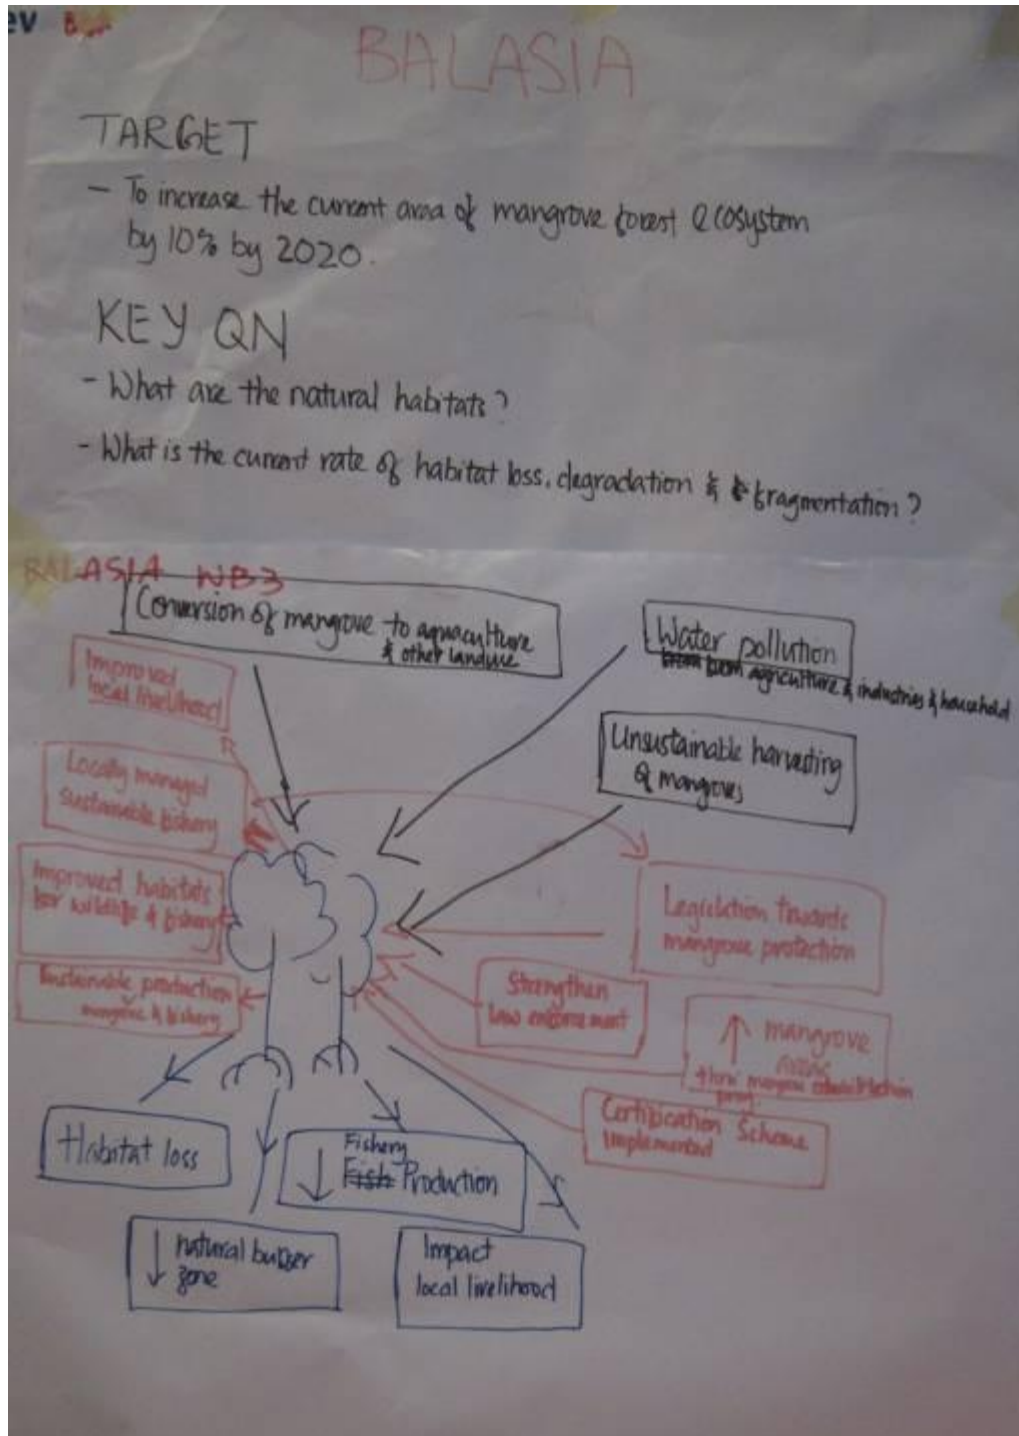 ev
BALASIA
TARGET
- To increase the current area of mangrove forest ecosystem
by 10% by 2020.
KEY QN
- What are the natural habitats?
- What is the current rate of habitat loss, degradation & fragmentation?
BALASIA WB3
Conversion of mangrove to aquaculture
& other landuse
Water pollution
from agriculture & industries & household
Improved
local livelihood
Unsustainable harvesting
of mangroves
Locally managed
sustainable fishery
Improved habitats
for wildlife & fishery
Legislation towards
mangrove protection
Sustainable production
mangrove & fishery
Strengthen
law enforcement
↑ mangrove
areas
thru' mangrove rehabilitation
prog.
Certification Scheme
implemented
Habitat loss
Fishery
↓ Fish Production
↓ natural buffer
zone
Impact
local livelihood